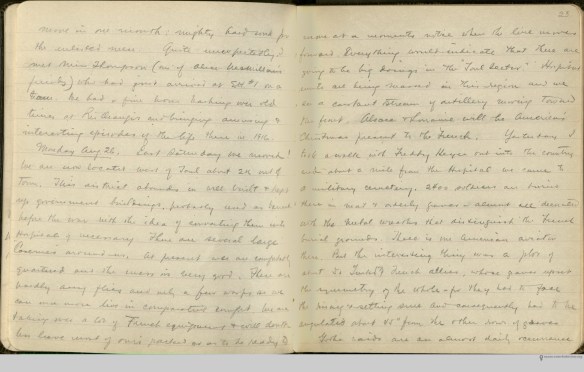 move in one month: mighty hard
the enlisted men. Quite unexpectedly I
met Miss Thompson (one of
family) who had just arrived at on a
We had a fine hour hashing over old
times at and bringing
interesting episodes of the life there in 1916.
Monday Aug 26. Last Saturday we moved
We are now located west of Toul about 2 K out of
Town. This abounds in well built & kept
up government buildings, probably used as
before the war with the idea of converting them into
hospitals if necessary. There are several large
around us. At present we are comfortably
quartered and the mess is very good. There are
hardly any flies and only a few so we
can once more live in comparative comfort. We are
taking over a lot of French equipment & will
leave most of ours packed so as to be ready to
23
move at a moments notice when the line moves
forward. Everything would indicate that there are
going to be big doings in "the Toul Sector". Hospital
units are being massed in this region and we
see a constant stream of artillery moving toward
the front. Alsace & Lorraine will be America's
Christmas present to the French. Yesterday I
took a walk with Freddy Hayes out into the country
and about a mile from the hospital we came to
a military cemetery. 2500 soldiers are buried
there in neat & orderly graves & almost all decorated
with the metal wreaths that distinguish the French
burial grounds. There is one American aviator
there. But the interesting thing was a plot of
about 20 French allies, whose graves upset
the symmetry of the whole for they had to face
the rising & setting sun and consequently had to be
angulated about 45° from the other rows of graves.
cards are an almost daily occurrence